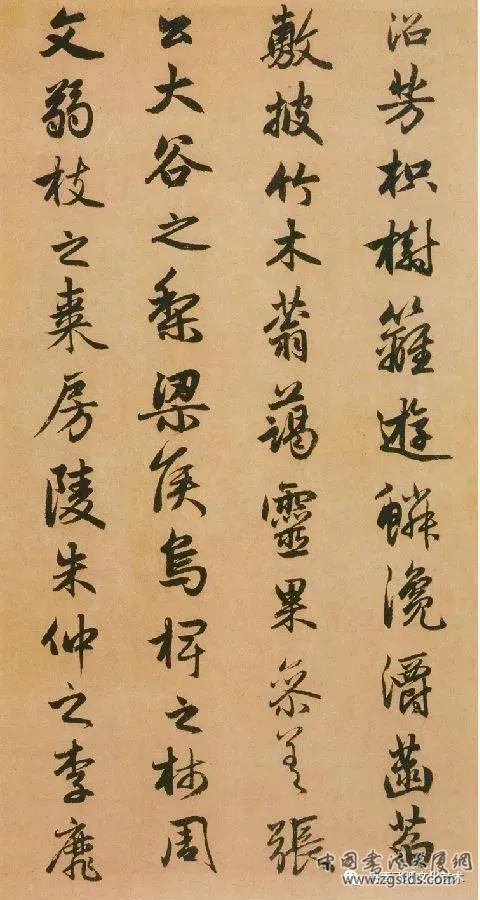 沼芳枳樹籬遊鱗瀺灂菡萏
敷披竹木蓊藹靈果參差張
公大谷之梨梁侯烏椑之柿周
文弱枝之棗房陵朱仲之李靡
中国书法发展网
文化艺术
www.zgsfds.com